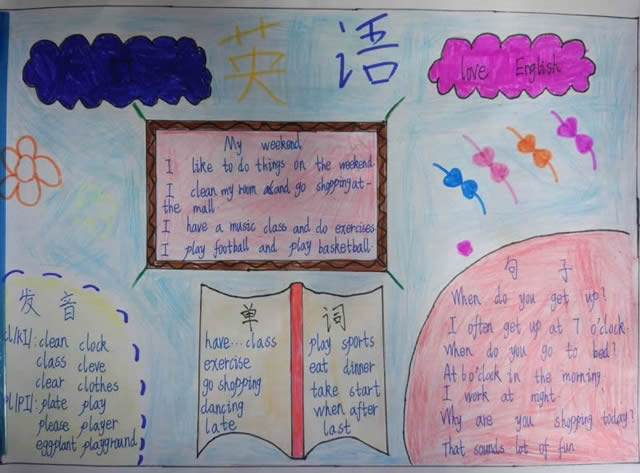 英语
love English
My weekend
I like to do things on the weekend
I clean my room and go shopping at
the mall
I have a music class and do exercises
I play football and play basketball
发音
cl/Kl/: clean clock
class cleve
clear clothes
pl/Pl/: plate play
please player
eggplant playground
单词
have...class
exercise
go shopping
dancing
late
play sports
eat dinner
take start
when after
last
句子
When do you get up?
I often get up at 7 o'clock.
When do you go to bed?
At 6 o'clock in the morning
I work at night
Why are you shopping today?
That sounds lot of fun